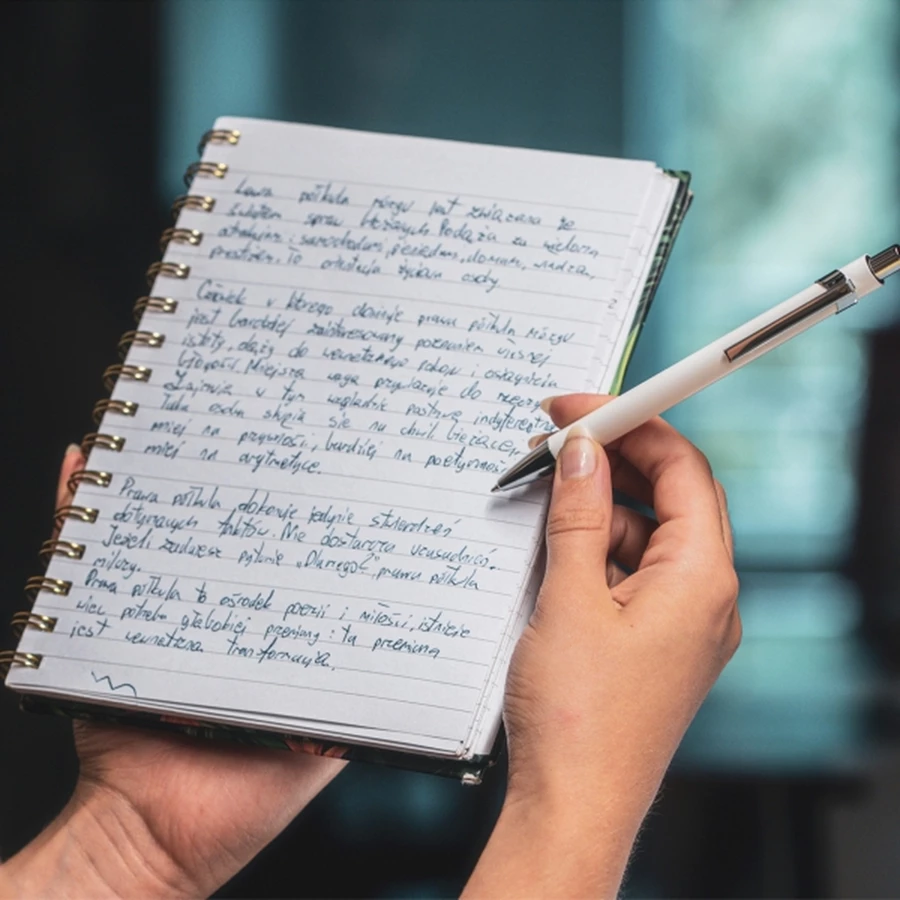 Lewa półkula mózgu jest związana ze
światem spraw bieżących. Podąża za wieloma
samochodami, pieniędzmi, domami, władzą,
prestiżem. To orientacja życiowa osoby
Człowiek w którego dominuje prawa półkula mózgu
jest bardziej zainteresowany poznaniem własnej
istoty, dąży do wewnętrznego pokoju i osiągnięcia
błogości. Mniejszą wagę przywiązuje do rzeczy.
Zajmuje w tym względzie postawę indyferentną
Taka osoba skupia się na chwili bieżącej,
mniej na przyszłości, bardziej na poetyczności
mniej na arytmetyce.
Prawa półkula dokonuje jedynie stwierdzeń
dotyczących faktów. Nie dostarcza uzasadnień.
Jeżeli zadajesz pytanie „Dlaczego?", prawa półkula
milczy.
Prawa półkula to ośrodek poezji i miłości, istnieje
więc potrzeba głębokiej przemiany: ta przemiana
jest wewnętrzna transformacja.